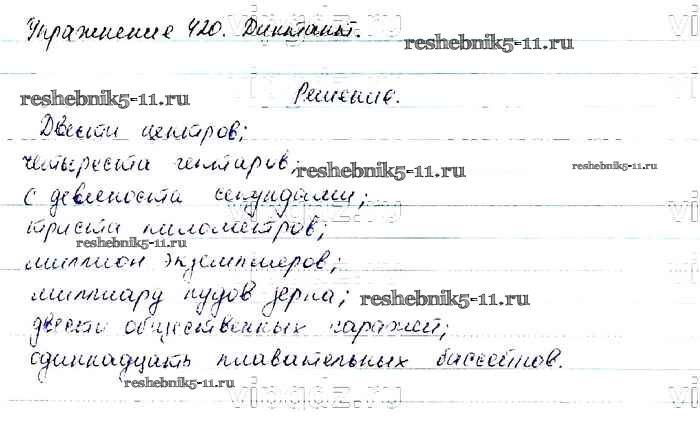 Упражнение 420. Диктант.
reshebnik5-11.ru
Решение.
reshebnik5-11.ru
Двести центров;
четыреста гектаров;
reshebnik5-11.ru
reshebnik5-11.ru
с девяноста секундами;
триста километров;
reshebnik5-11.ru
миллион экземпляров;
миллиард пудов зерна;
reshebnik5-11.ru
двести общественных гаражей;
одиннадцать плавательных бассейнов.
reshebnik5-11.ru